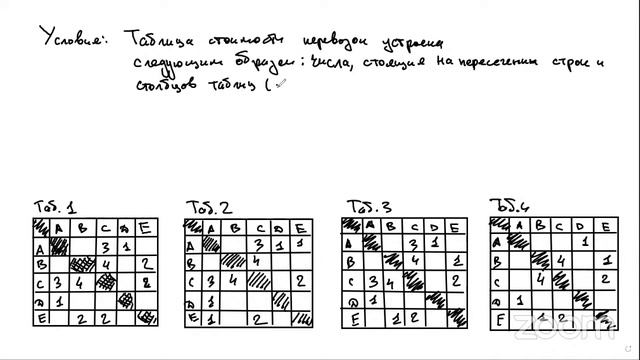 Условия: Таблица стоимости перевозок устроена
следующим образом: числа, стоящие на пересечении строк и
столбцов таблиц (
Таб. 1 Таб. 2 Таб. 3 Таб. 4
A B C D E A B C D E A B C D E A B C D E
A 3 1 A 3 1 1 A 3 1 A 1
B 4 2 B 4 B 4 1 B 4 1
C 3 4 2 C 3 4 2 C 3 4 2 C 4 2
D 1 D 1 D 1 D 1
E 2 2 E 1 2 E 1 2 E 1 2
zoom